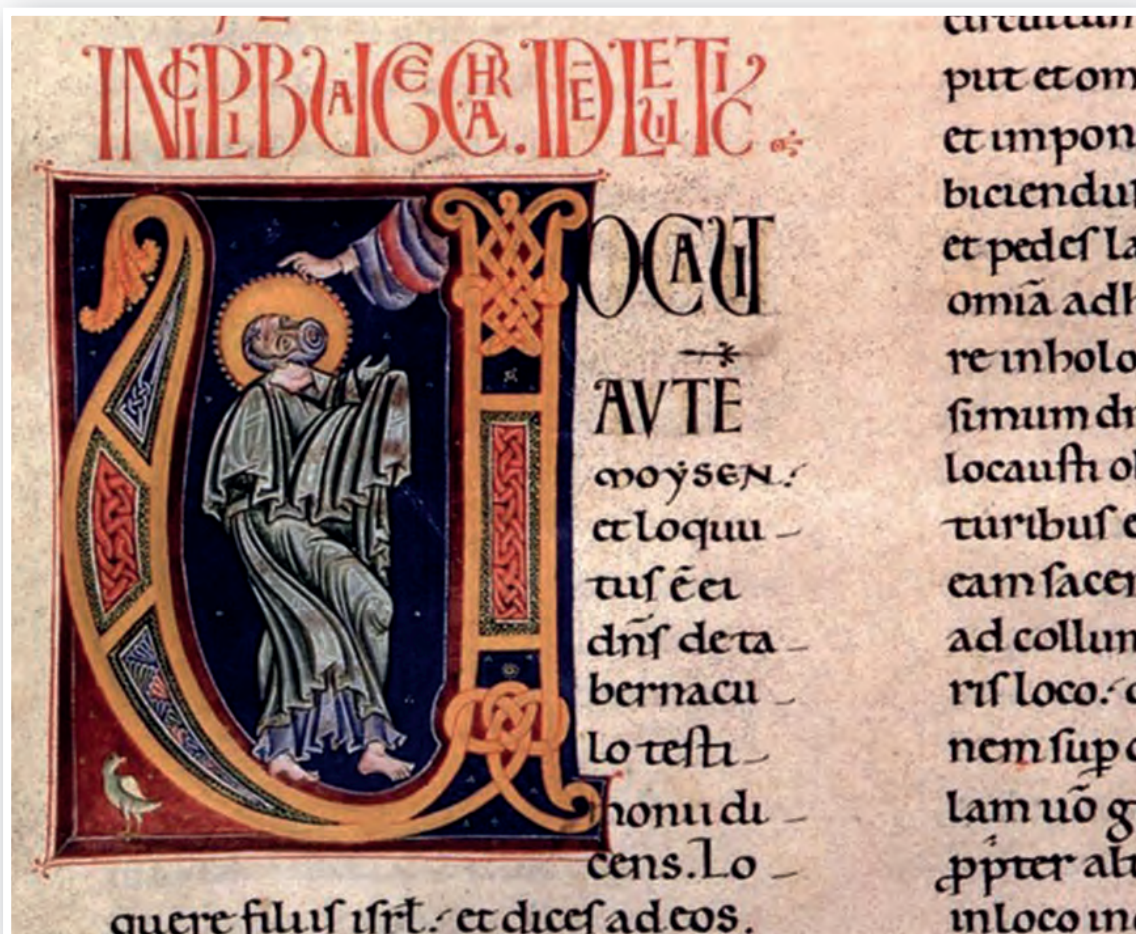 INCIPI UAGECHRA. IDE LEUITIC.
UOCAUIT
AVTĒ
MOẎSEN.
et loquu
tuſ ē ei
dn̄ſ de ta
bernacu
lo teſti
monii di
cens. Lo
quere filiiſ iſrl̄. et diceſ ad eos.
put et om
et impon
biciendu
et pedeſ la
omīa adh
re in holo
ſimum
locauſti
turibuſ
eam ſacer
ad collum
riſ loco.
nem ſup
lam uō
ppter alt
in loco in